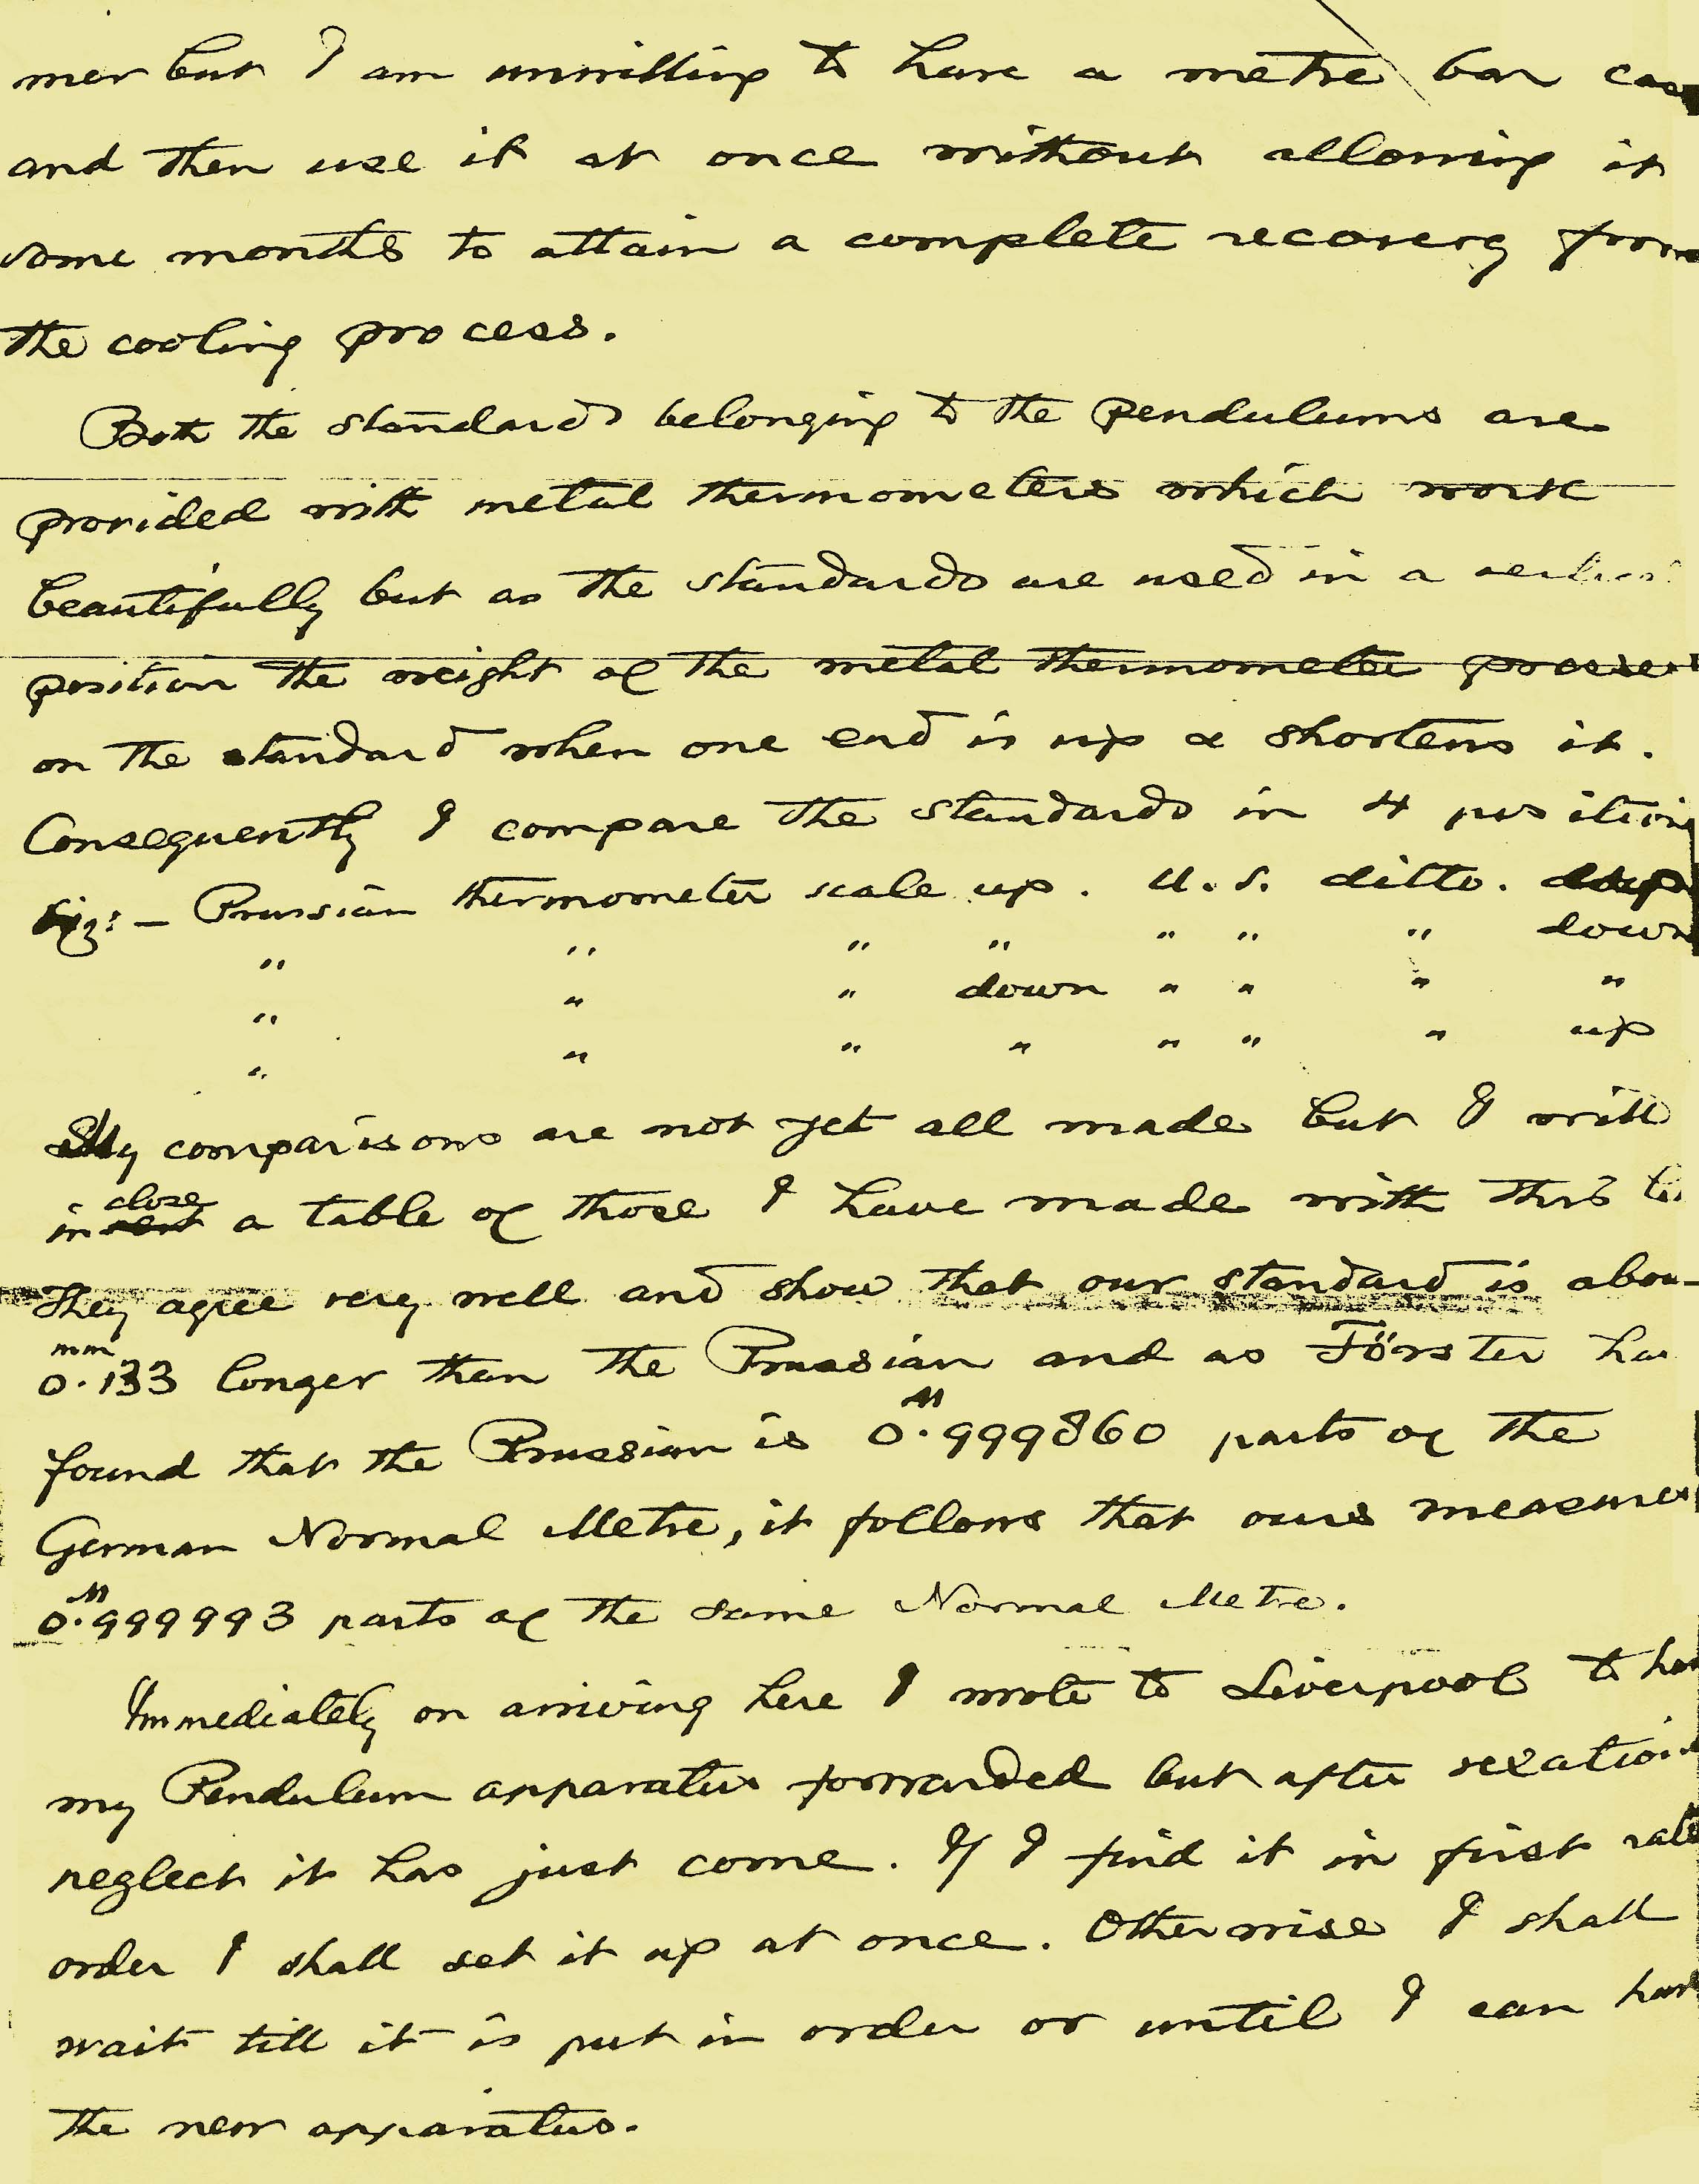 mer but I am unwilling to have a metre bar cas
and then use it at once without allowing it
some months to attain a complete recovery from
the cooling process.
Both the standards belonging to the pendulums are
provided with metal thermometers which work
beautifully but as the standards are used in a
position the weight of the metal thermometer presses
on the standard when one end is up & shortens it.
Consequently I compare the standards in 4 position
Viz:— Prussian thermometer scale up. U.S. ditto. up
" " " " " " " down
" " " down " " " "
" " " " " " " up
My comparisons are not yet all made but I will
inclose a table of those I have made with this
They agree very well and show that our standard is abou
0.133 mm longer than the Prussian and as Förster has
found that the Prussian is 0.999860 M parts of the
German Normal Metre, it follows that ours measures
0.999993 M parts of the same Normal Metre.
Immediately on arriving here I wrote to Liverpool to hav
my Pendulum apparatus forwarded but after vexatious
neglect it has just come. If I find it in first rate
order I shall set it up at once. Otherwise I shall
wait till it is put in order or until I can have
the new apparatus.